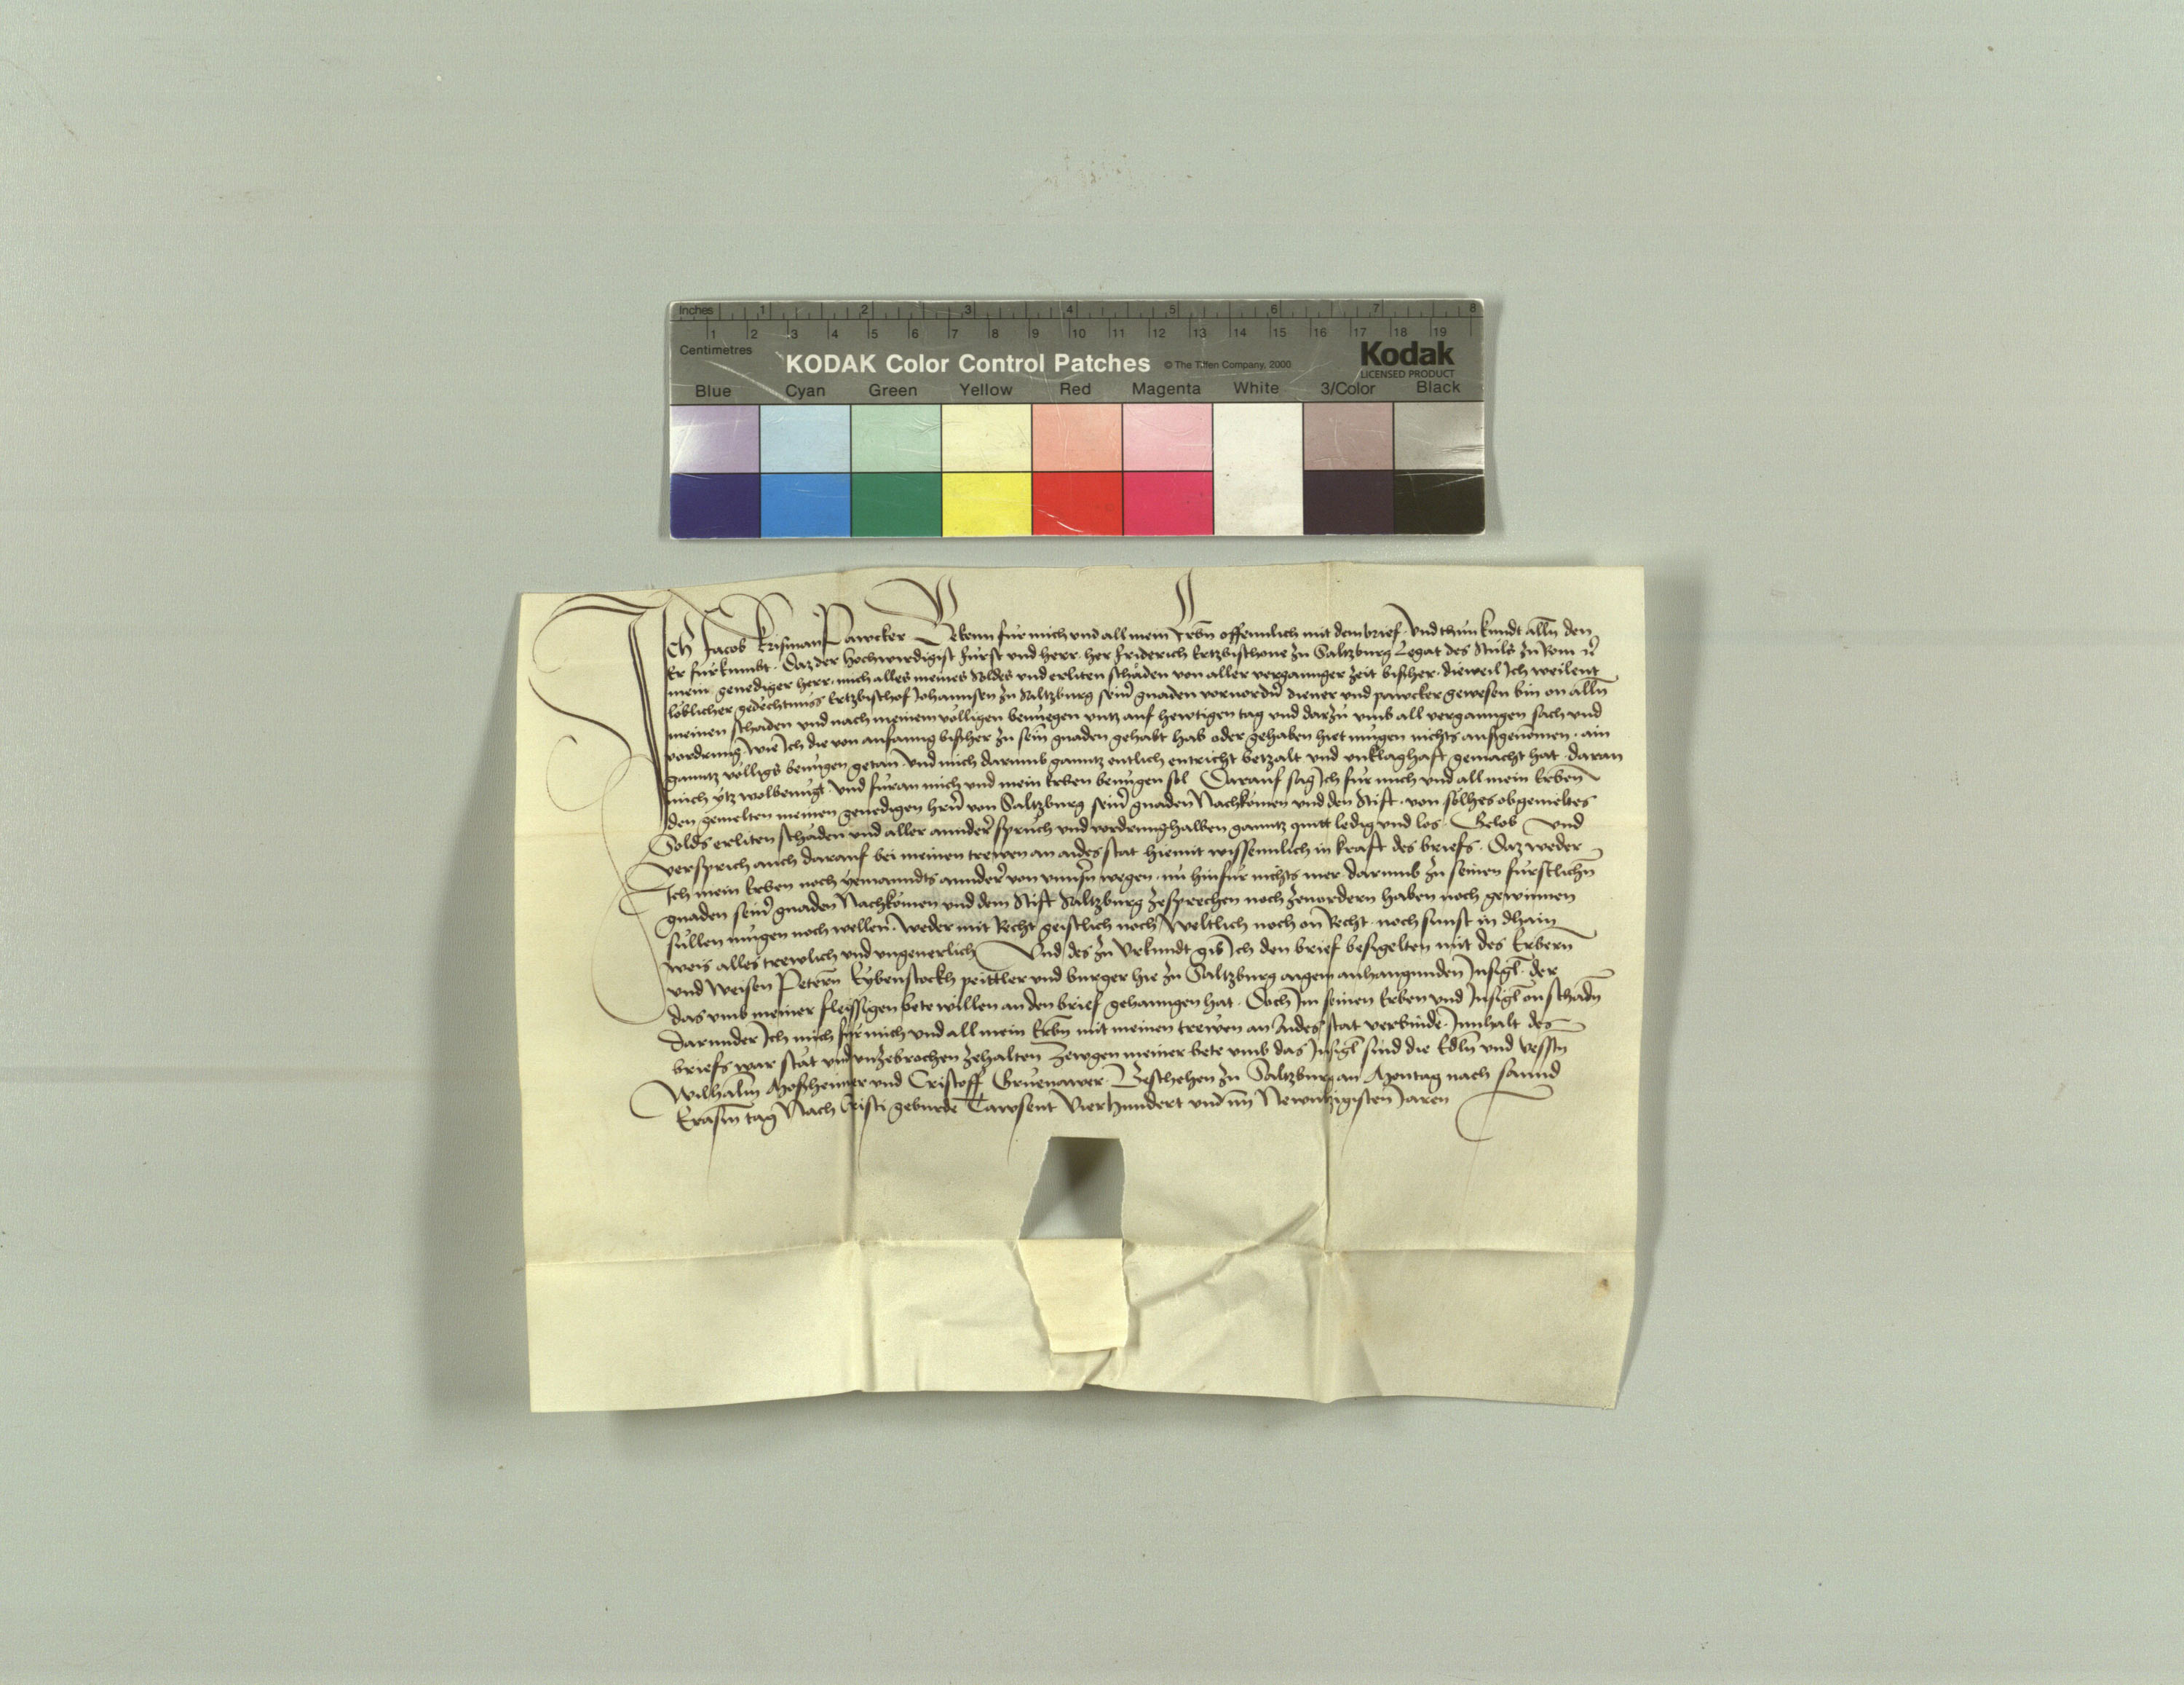 Inches 1 2 3 4 5 6 7 8
1 2 3 4 5 6 7 8 9 10 11 12 13 14 15 16 17 18 19
Centimetres
KODAK Color Control Patches © The Tiffen Company, 2000 Kodak
LICENSED PRODUCT
Blue Cyan Green Yellow Red Magenta White 3/Color Black
Ich Jacob Krisman Pawcker Bekenn fur mich und all mein Erbn̄ offennlich mit dem brief. Und thun kundt alln̄ den
Er furkumbt. Daz der hochwirdigist Fürst und herr. her Friderich Ertzbischoue zu Saltzburg Legat des Stuls zu Rom
mein genediger herr. mich alles meines Soldes und erliten schäden von aller verganngner zeit bisher. dieweil Ich weilent
löblicher gedechtnuss Ertzbischof Johannsen zu Saltzburg gnaden diener und pawcker gewesen bin on alln̄
meinen schaden und nach meinem völligen benuegen untz auf hewtigen tag und darzu umb all vergangen sach und
vordrung wie Ich die von anfanng bisher zu sein gnaden gehabt hab oder gehaben hiet mugen nichts ausgenomen. ain
ganntz völligs benugen getan und mich darumb ganntz entlich entricht betzalt und unklaghaft gemacht hat. daran
mich ytz wolbenugt. und füran mich und mein Erben benugen sol Darauf sag Ich fur mich und all mein Erben
den gemelten meinen genedigen hrn̄ von Saltzburg gnaden Nachkomen und den Stift. von sölhes obgemeltes
Solds erliten schäden und aller annder spruch und vordrung halben ganntz quitt ledig und los. Gelob und
versprich auch darauf bei meinen trewen an aides stat hiemit wissennlich in kraft des briefs. Daz weder
Ich mein Erben noch yemanndts annder von unnsn̄ wegen. nu hinfur nichts mer darumb zu seinen fürstlichn̄
gnaden gnaden Nachkomen und dem Stift Saltzburg zesprechen noch zevordern haben noch gewinnen
sullen mugen noch wellen. weder mit Recht geistlich noch Weltlich noch on Recht. noch sunst in dhain
weis alles trewlich und ungeuerlich Und des zu Urkundt gib Ich den brief besigelten mit des Erbern̄
und weisen Petern̄ Eybenstockh peittler und burger hie zu Saltzburg aigem anhangunden Insigl̄. der
das umb meiner fleissigen bete willen an den brief gehanngen hat. Doch Im seinen Erben und Insigl̄ on schadn̄
Darunder Ich mich für mich und all mein Erbn̄ mit meinen trewen an Aides stat verbinde. Innhalt des
briefs war stät und unzebrochen zehalten Zewgen meiner bete umb das Insigl̄ sind die Edln̄ und Vesstn̄
Wilhalm̄ und Cristoff Gruenawer. Beschehen zu Saltzburg an Montag nach sannd
Erasm̄ tag Nach Cristi geburde Tawsent Vierhundert und im Newntzigisten Jaren